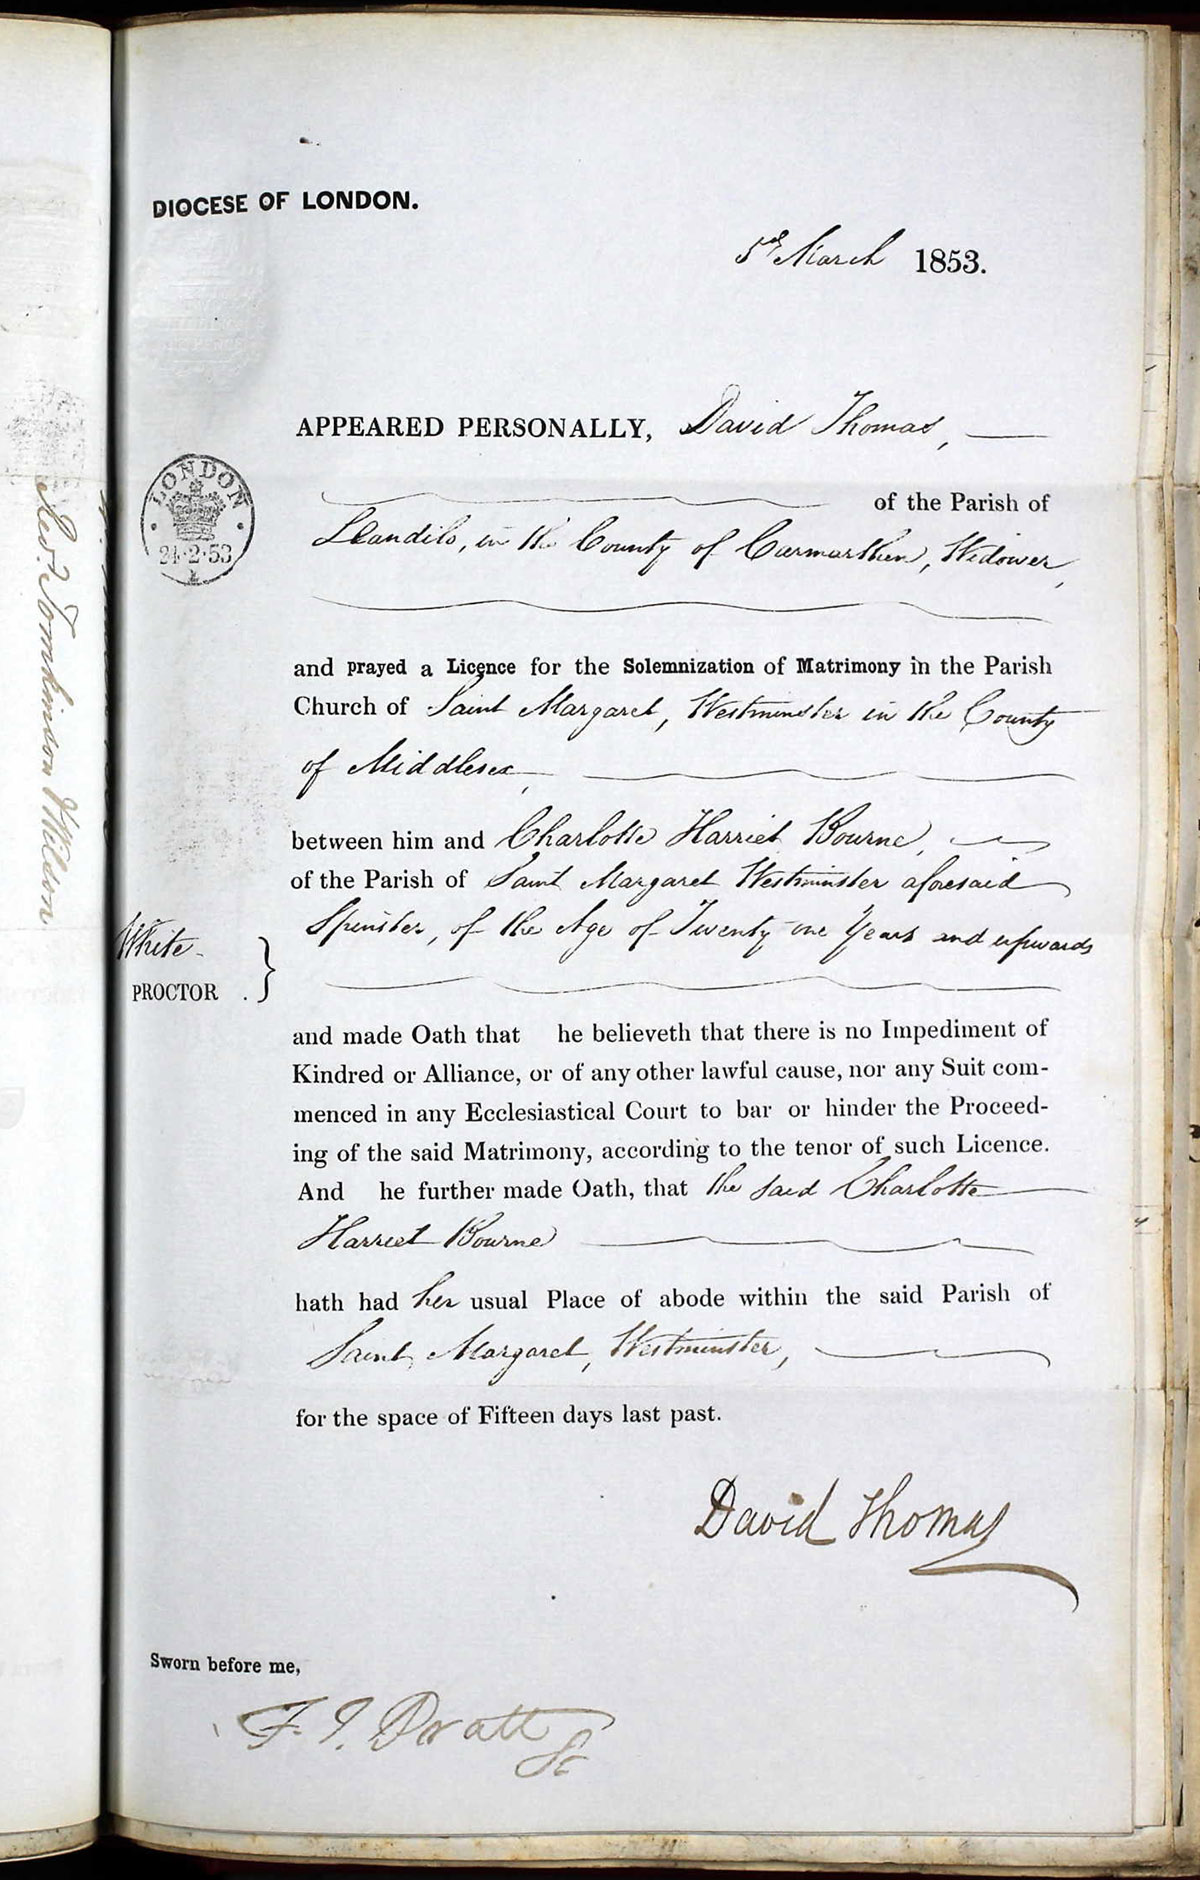 DIOCESE OF LONDON.
5th March 1853.
APPEARED PERSONALLY, David Thomas,
of the Parish of
Llandilo, in the County of Carmarthen, Widower,
LONDON
24·2·53
and prayed a Licence for the Solemnization of Matrimony in the Parish
Church of Saint Margaret, Westminster in the County
of Middlesex,
between him and Charlotte Harriet Bourne,
of the Parish of Saint Margaret Westminster aforesaid
Spinster, of the Age of Twenty one Years and upwards
White
PROCTOR .
and made Oath that he believeth that there is no Impediment of
Kindred or Alliance, or of any other lawful cause, nor any Suit com-
menced in any Ecclesiastical Court to bar or hinder the Proceed-
ing of the said Matrimony, according to the tenor of such Licence.
And he further made Oath, that the said Charlotte
Harriet Bourne
hath had her usual Place of abode within the said Parish of
Saint Margaret, Westminster,
for the space of Fifteen days last past.
David Thomas
Sworn before me,
F. T. Pratt
Rev. Tomkinson Wilson